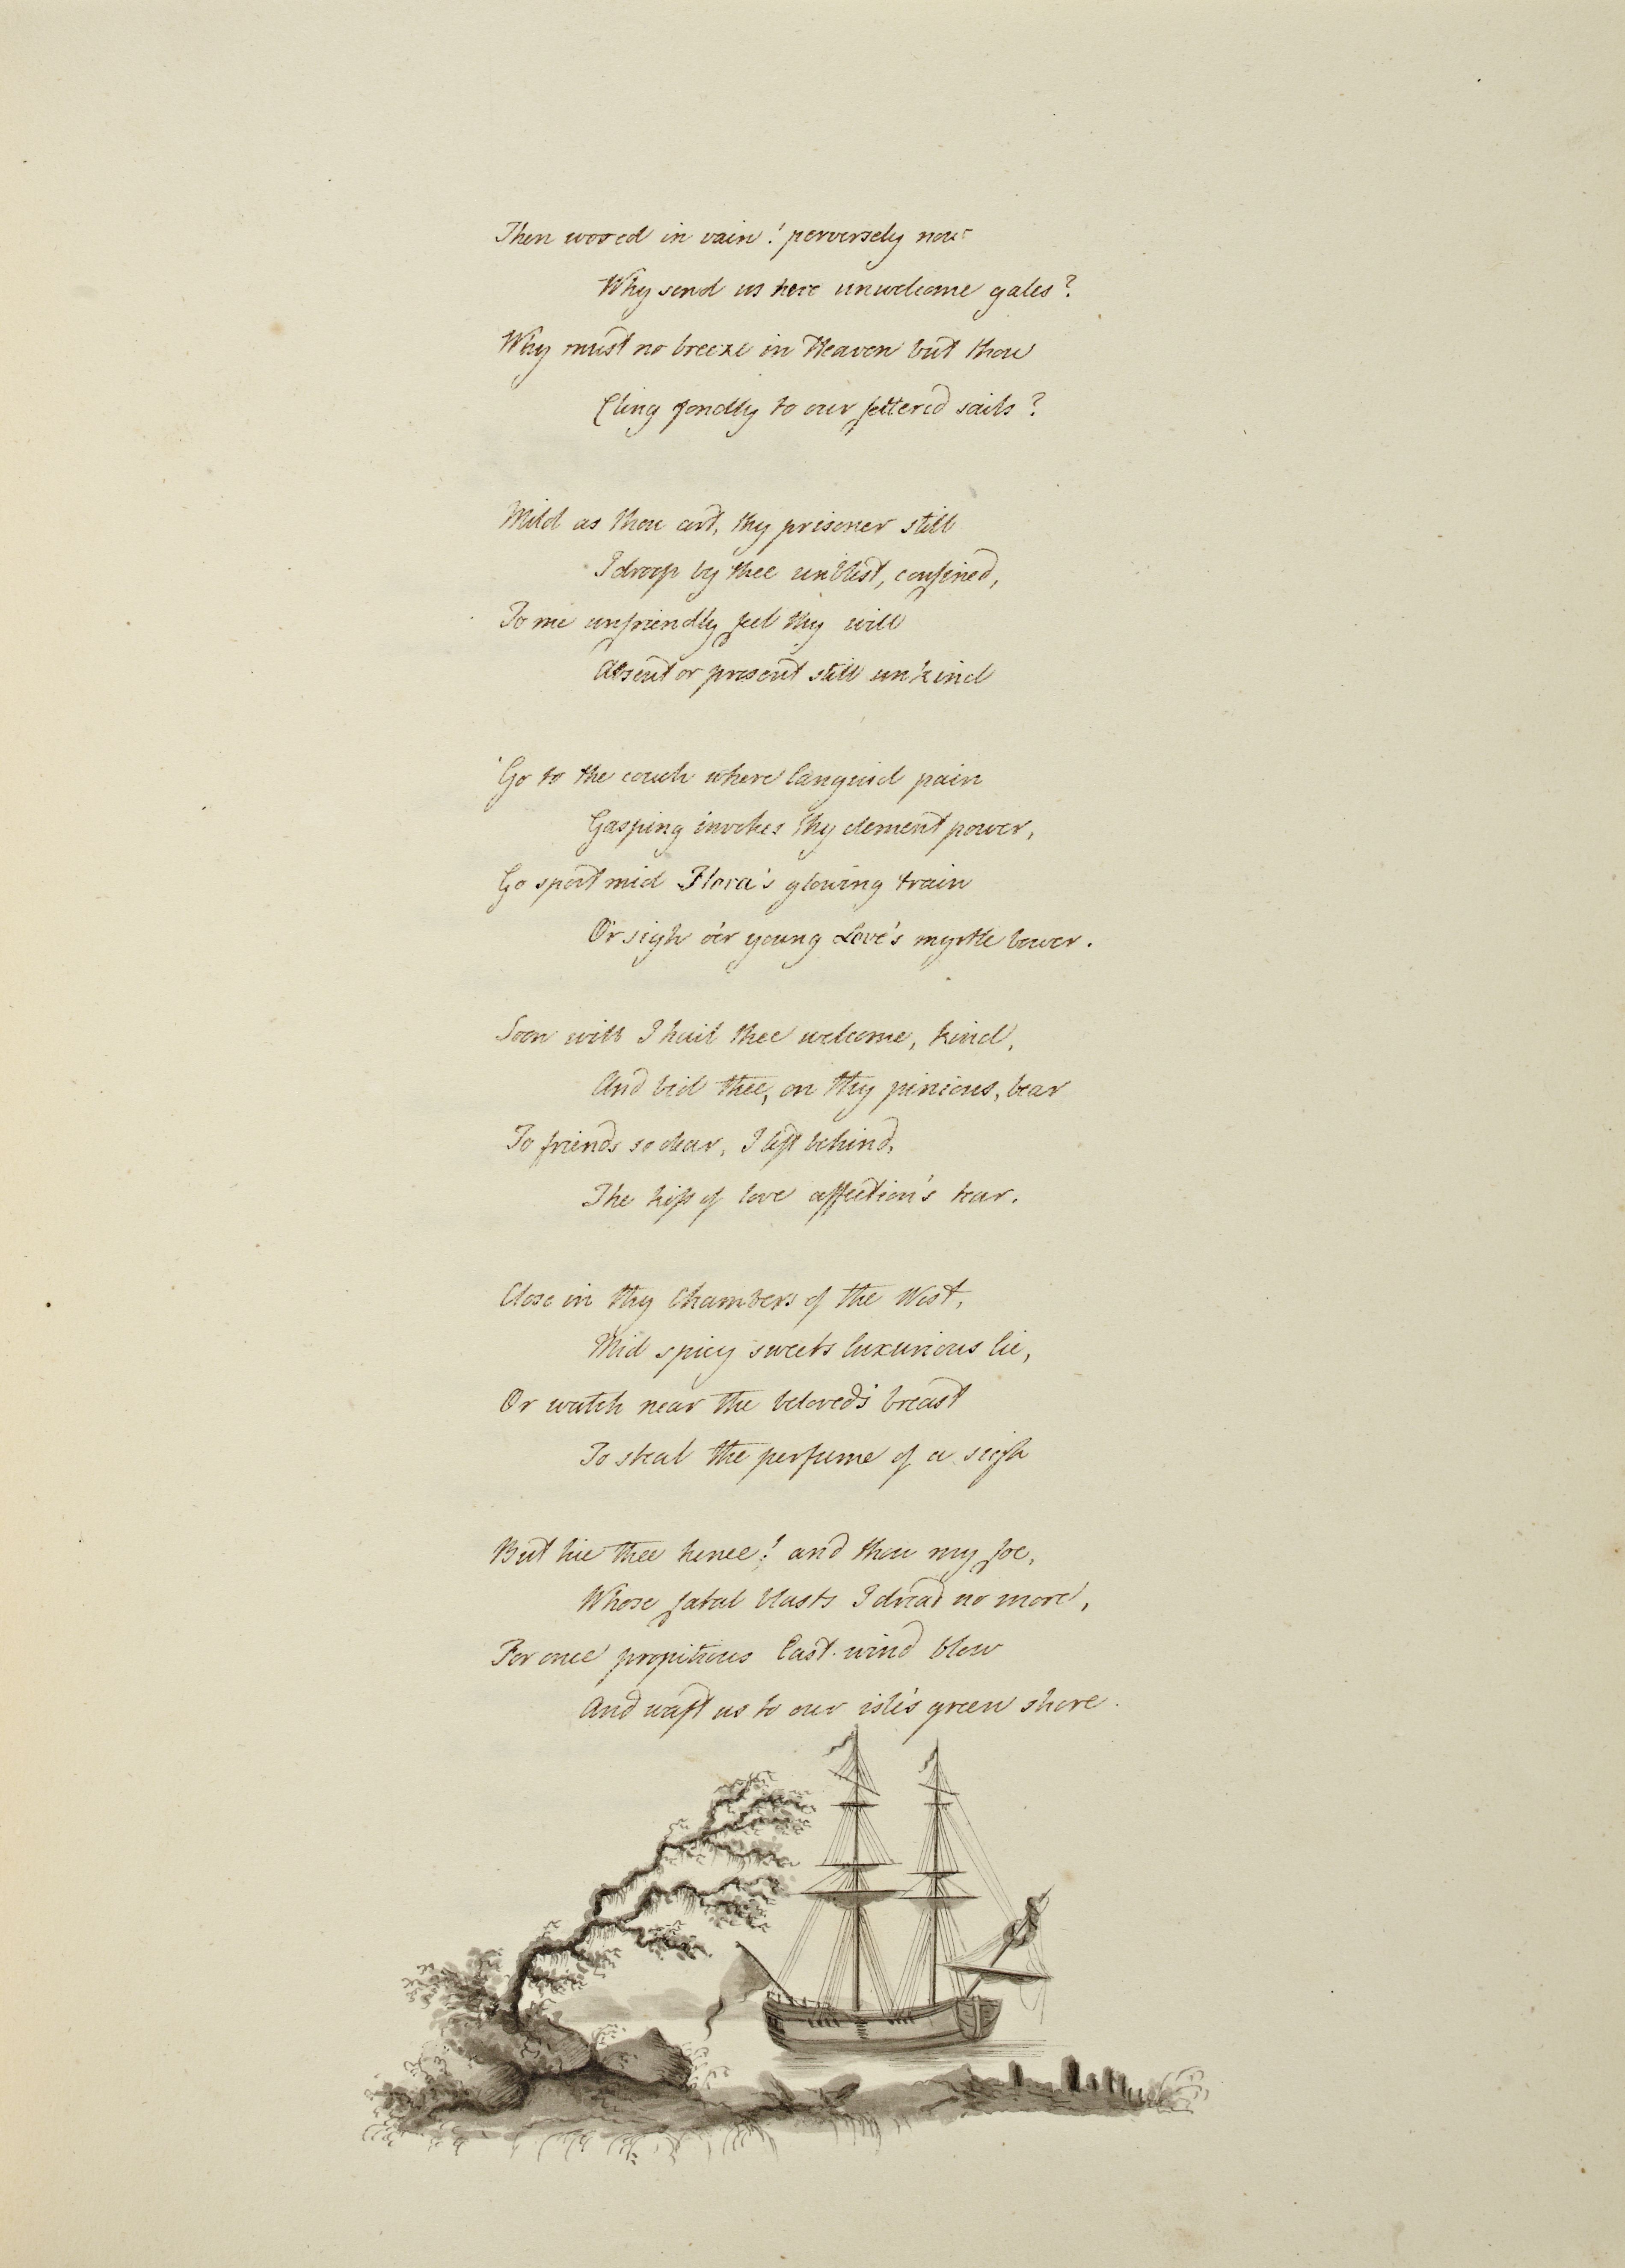 Then wooed in vain! perversely now
Why send us here unwelcome gales?
Why must no breeze in Heaven but thou
Cling fondly to our fettered sails?
Mild as thou art, thy prisoner still
I droop by thee unblest, confined,
To me unfriendly feel thy will
Absent or present still unkind
Go to the couch where languid pain
Gasping invokes thy clement power,
Go sport mid Flora's glowing train
Or sigh o'er young Love's myrtle bower.
Soon will I hail thee welcome, kind,
And bid thee, on thy pinions, bear
To friends so dear, I left behind,
The kiss of love affection's tear.
Close in thy Chambers of the West,
Mid spicy sweets luxurious lie,
Or watch near the beloved's breast
To steal the perfume of a sigh
But hie thee hence! and thou my foe,
Whose fatal blasts I dread no more,
For once propitious East-wind blow
And waft us to our isle's green shore.